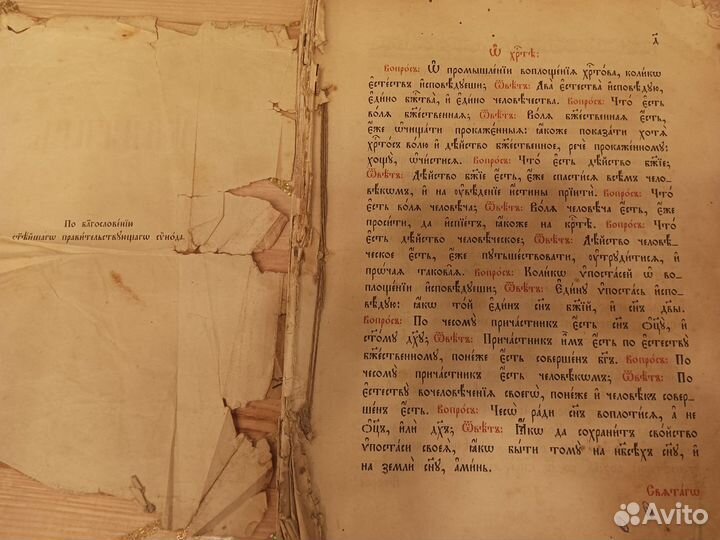 По бл҃гословенїи
ст҃ѣйшагѡ правительствующагѡ сѷно́да.
а҃
Ѡ хр҇тѣ:
Вопро́съ: Ѿ промышле́нїи воплоще́нїѧ хр҇то́ва, коли́кѡ
є҆сте́ствъ и҆сповѣ́дꙋеши; Ѿвѣ́тъ: Два̀ є҆стества̀ и҆сповѣ́дꙋю,
є҆ди́но бж҃тва̀, и҆ є҆ди́но человѣ́чества. Вопро́съ: Что̀ є҆́сть
во́лѧ бж҃е́ственнаѧ; Ѿвѣ́тъ: Во́лѧ бж҃е́ственнаѧ є҆́сть,
є҆́же ѡ҆чища́ти прокаже́нныѧ: ꙗ҆́коже показа́ти хотѧ̀
хр҇то́съ во́лю и҆ дѣ́йство бж҃е́ственное, речѐ прокаже́нномꙋ:
хощꙋ̀, ѡ҆чи́стисѧ. Вопро́съ: Что̀ є҆́сть дѣ́йство бж҃їе;
Ѿвѣ́тъ: Дѣ́йство бж҃їе є҆́сть, є҆́же спасти́сѧ всѣ̑мъ чело-
вѣ́кѡмъ, и҆ на ᲂу҆вѣ́денїе и҆́стины прїитѝ. Вопро́съ: Что̀
є҆́сть во́лѧ человѣ́ча; Ѿвѣ́тъ: Во́лѧ человѣ́ча є҆́сть, є҆́же
проси́ти, да и҆спїе́тъ, ꙗ҆́коже на кр҇тѣ̀. Вопро́съ: Что̀
є҆́сть дѣ́йство человѣ́ческое; Ѿвѣ́тъ: Дѣ́йство человѣ́-
ческое є҆́сть, є҆́же пꙋтьше́ствовати, ᲂу҆трꙋди́тисѧ, и҆
прѡ́чаѧ такова̑ѧ. Вопро́съ: Коли́кѡ ѵ҆поста́сей ѡ҆ во-
площе́нїи и҆сповѣ́дꙋеши; Ѿвѣ́тъ: Є҆ди́нꙋ ѵ҆поста́сь и҆спо-
вѣ́дꙋю: ꙗ҆́кѡ то́й є҆ди́нъ сн҃ъ бж҃їй, и҆ сн҃ъ дв҃ы.
Вопро́съ: По чесомꙋ̀ прича́стникъ є҆́сть сн҃ъ ѻ҆ц҃ꙋ̀, и҆
ст҃о́мꙋ дх҃ꙋ; Ѿвѣ́тъ: Прича́стникъ и҆̀мъ є҆́сть по є҆стествꙋ̀
бж҃е́ственномꙋ, поне́же є҆́сть соверше́нъ бг҃ъ. Вопро́съ: По
чесомꙋ̀ прича́стникъ є҆́сть человѣ́кѡмъ; Ѿвѣ́тъ: По
є҆стествꙋ̀ вочеловѣ́ченїѧ своегѡ̀, поне́же и҆ человѣ́къ совер-
ше́нъ є҆́сть. Вопро́съ: Чесѡ̀ ра́ди сн҃ъ воплоти́сѧ, а҆ не
ѻ҆ц҃ъ, и҆лѝ дх҃ъ; Ѿвѣ́тъ: Ꙗ҆́кѡ да сохрани́тъ сво́йство
ѵ҆поста́си своеѧ̀, ꙗ҆́кѡ бы́ти томꙋ̀ на нб҃сѣ́хъ сн҃ꙋ, и҆
на землѝ сн҃ꙋ, а҆ми́нь.
Свѧта́гѡ
Avito